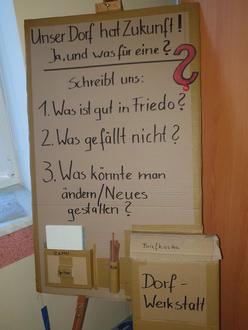 Unser Dorf hat Zukunft!
Ja, und was für eine?
?
Schreibt uns:
1. Was ist gut in Friedo?
2. Was gefällt nicht?
3. Was könnte man
ändern/Neues
gestalten?
Briefkasten
Dorf-
Werkstatt